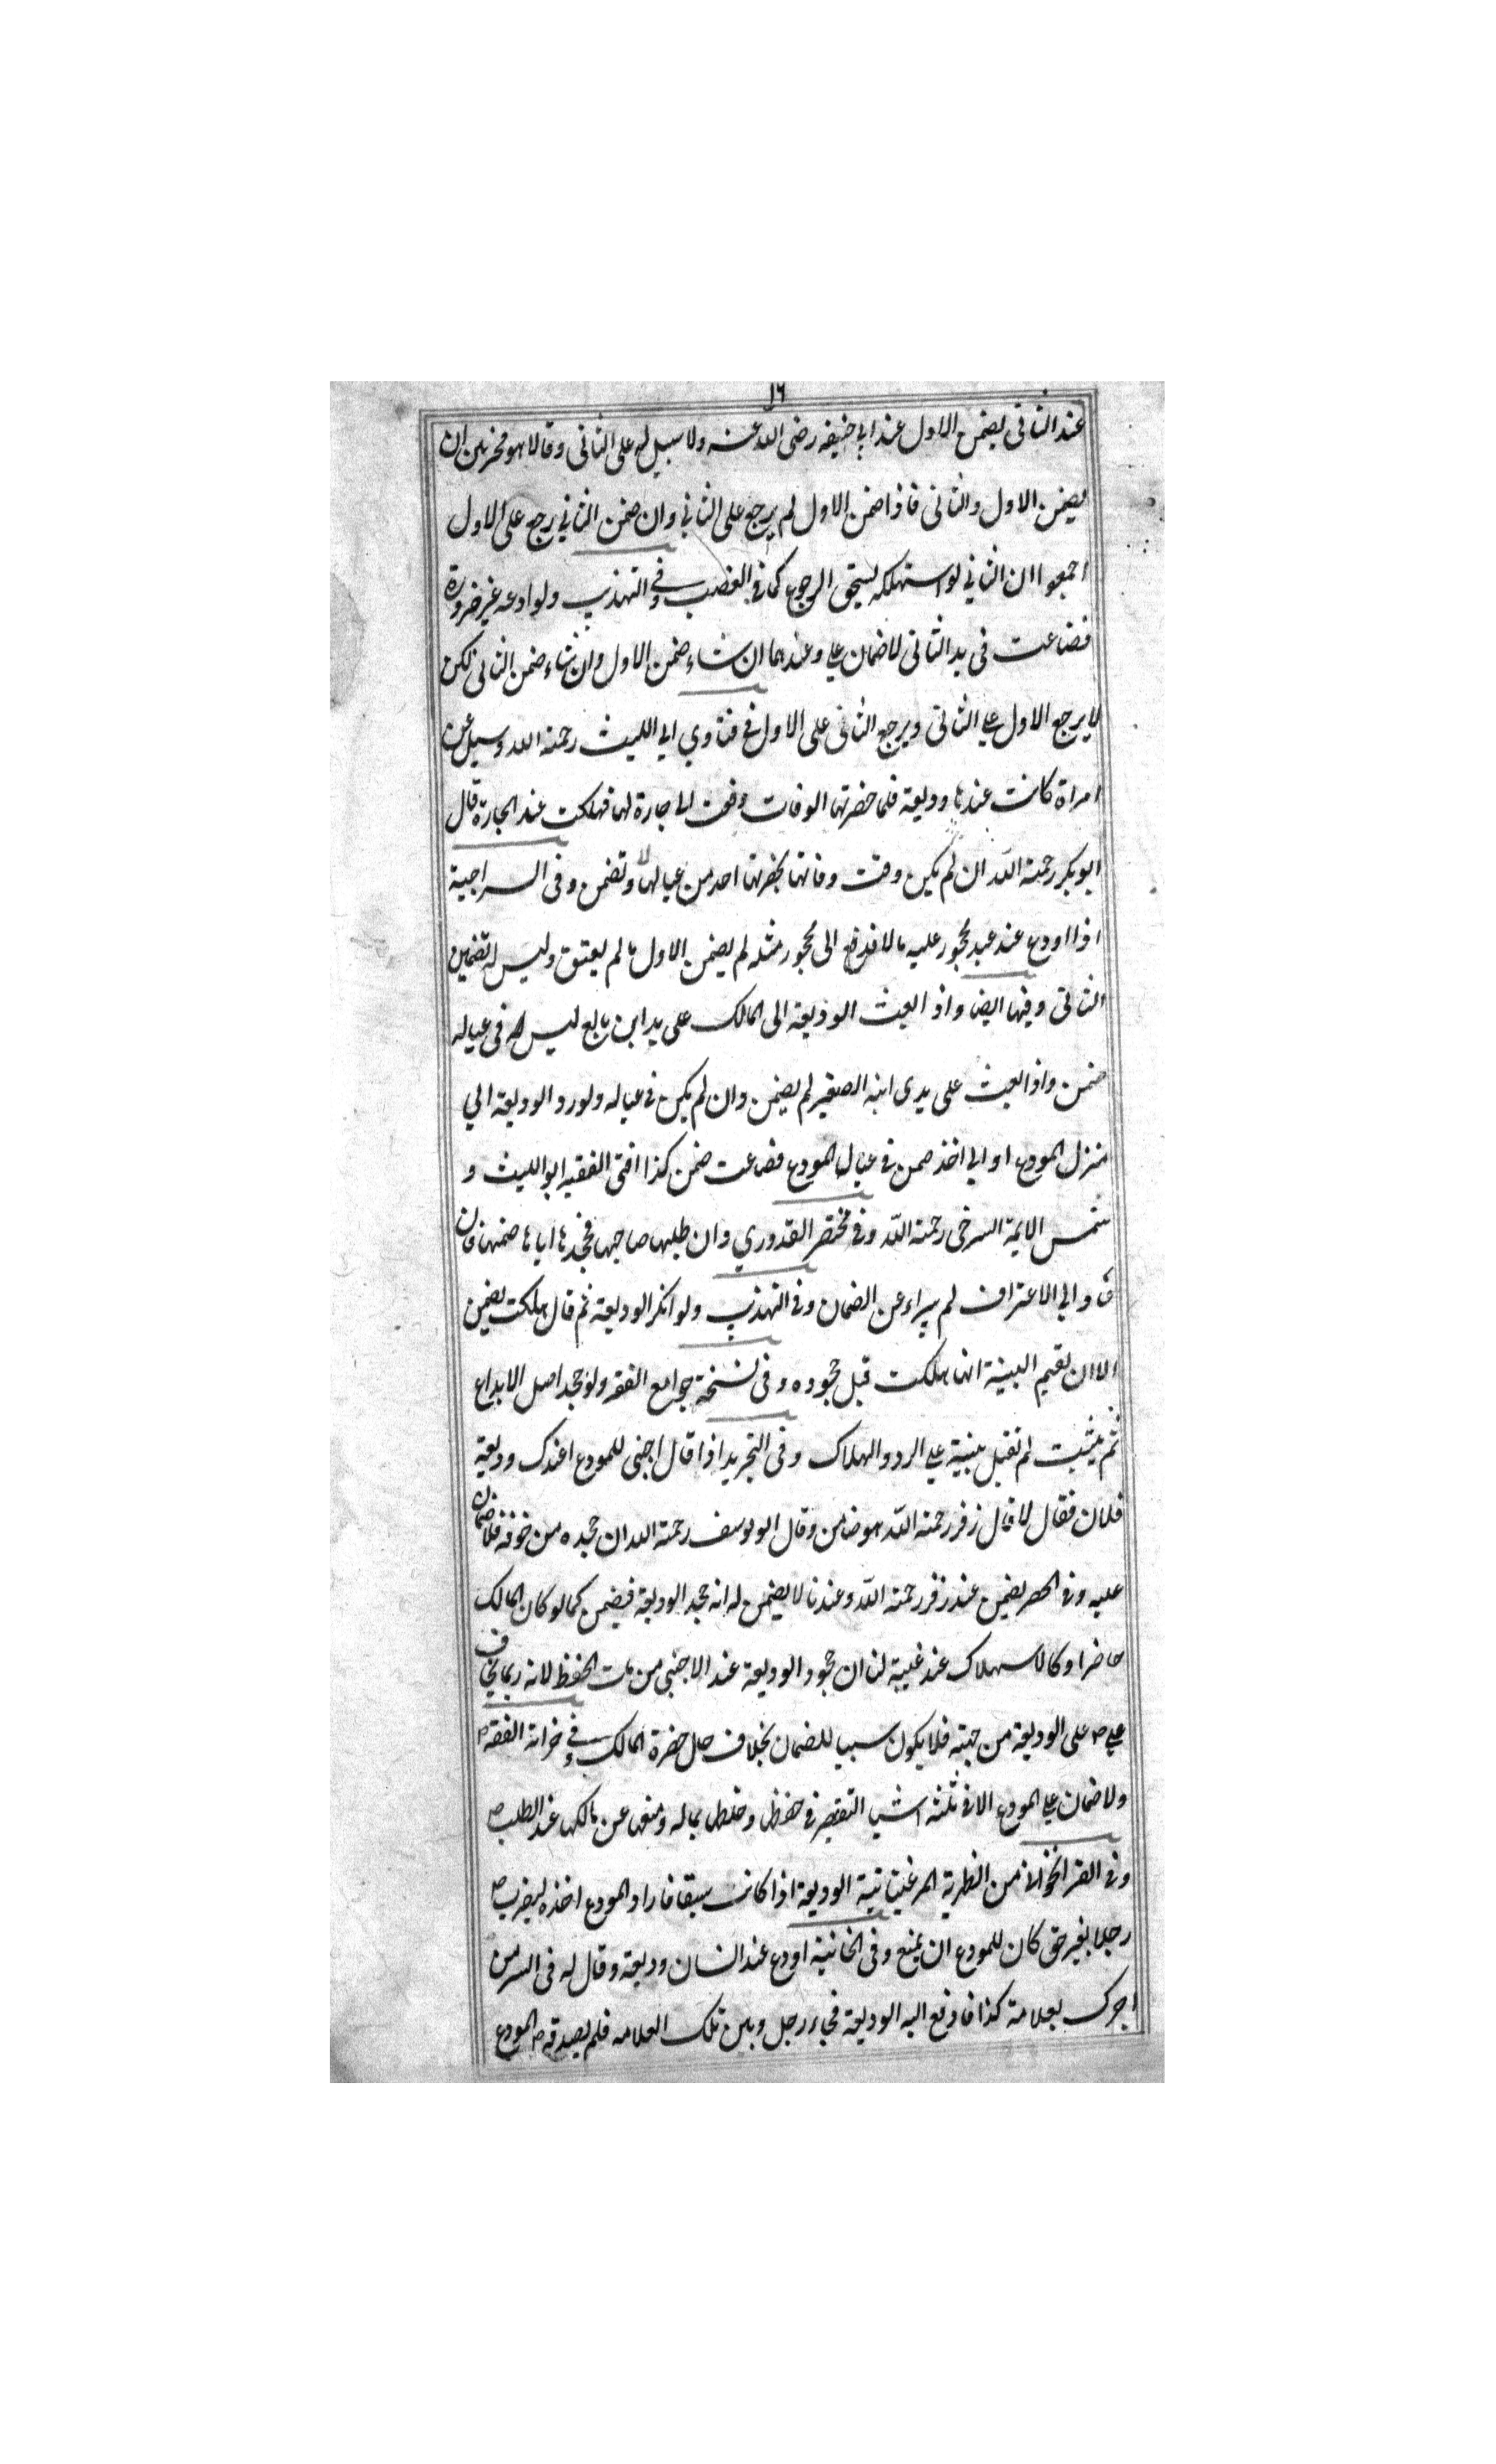 ١٦
عند الثانى يضمن الاول عند ابي حنيفه رضى الله عنه ولا سبيل له على الثانى وقالا هو مخير بين ان
يضمن الاول والثانى فاذا ضمن الاول لم يرجع على الثاني وان ضمن الثاني رجع على الاول
اجمعوا ان الثاني لو استهلكه يستحق الرجوع كما في الغصب وفي التهذيب ولو اودعه غير ضرورة
فضاعت فى يد الثانى لا ضمان علي وعندهما ان شاء ضمن الاول وان شاء ضمن الثانى لكن
لا يرجع الاول علي الثانى ويرجع الثانى على الاول في فتاوي ابي الليث رحمة الله وسيل عن
امراة كانت عندها وديعة فلما حضرتها الوفات دفعت الى جارة لها فهلكت عند الجارة قال
ابو بكر رحمة الله ان لم يكن وقت وفاتها بحضرتها احد من عيالها لا وتضمن وفى السراجية
اذا اودع عند عبد محجور عليه مالا فدفع الى محجور مثله لم يضمن الاول ما لم يعتق وليس له تضمين
الثانى وفيها ايضا واذ ابعث الوديعة الى المالك على يد ابن بالغ ليس له فى عياله
ضمن واذ ابعث على يدى ابنه الصغير لم يضمن وان لم يكن في عياله ولو رد الوديعة الي
منزل المودع او الي اخذ ممن في عيال المودع فضاعت ضمن كذا افتى الفقيه ابو الليث و
شمس الايمة السرخى رحمة الله وفي مختصر القدوري وان طلبها صاحبها فجحدها اياها ضمنها فان
عاد الي الاعتراف لم يبراء عن الضمان وفي التهذيب ولو انكر الوديعة ثم قال هلكت يضمن
الا ان يقيم البينة انها هلكت قبل جحوده وفى نسخة جوامع الفقه ولو جحد اصل الايداع
ثم يثبت لم تقبل بينة علي الرد والهلاك وفى التجريد اذا قال اجنبى للمودع اعندك وديعة
فلان فقال لا قال زفر رحمة الله هو ضامن وقال ابو يوسف رحمة الله ان جحده من خوفه فلا ضمان
عليه وفي الحصر يضمن عند زفر رحمة الله وعندنا لا يضمن له انه جحد الوديعة فيضمن كما لو كان المالك
حاضرا وكالاستهلاك عند غيبة لنا ان جحود الوديعة عند الاجنبي من باب الحفظ لانه ربما يخاف
علي ص على الوديعة من جهته فلا يكون سببا للضمان بخلاف حال حضرة المالك وفي خزانة الفقه
ولا ضمان علي المودع الا في ثلثة اشيا التقصير في حفظ وخلط بماله ومنعها عن مالكها عند الطلب
وفي القراخوانى من الظهرية المرغينانية الوديعة اذا كانت سيفا فاراد المودع اخذه ليضرب
رجلا بغير حق كان للمودع ان يمنع وفى الخانية اودع عند انسان وديعة وقال له فى السر من
اخبرك بعلامة كذا فادفع اليه الوديعة فجاء رجل وبين تلك العلامه فلم يصدقه المودع